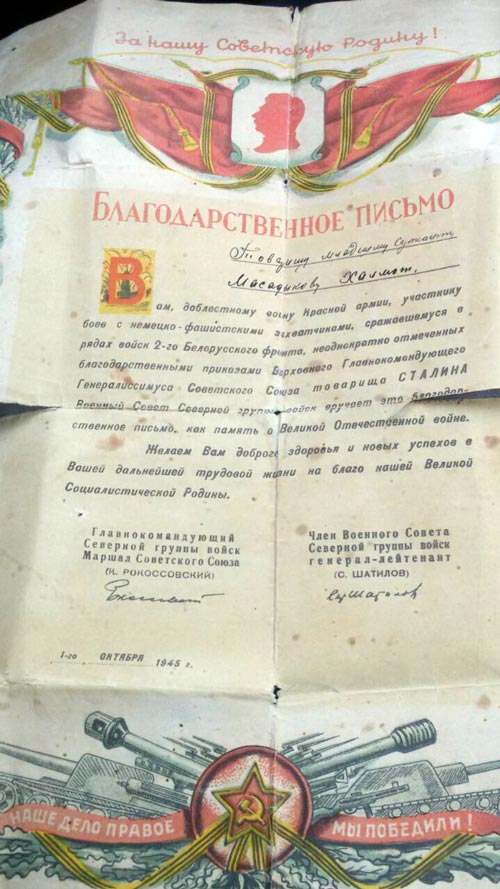 За нашу Советскую Родину!
БЛАГОДАРСТВЕННОЕ ПИСЬМО
Товарищу младшему сержанту
Масадикову Халмат.
Вам, доблестному воину Красной армии, участнику
боев с немецко-фашистскими захватчиками, сражавшемуся в
рядах войск 2-го Белорусского фронта, неоднократно отмеченных
благодарственными приказами Верховного Главнокомандующего
Генералиссимуса Советского Союза товарища СТАЛИНА
Военный Совет Северной группы войск вручает это благодар-
ственное письмо, как память о Великой Отечественной войне.
Желаем Вам доброго здоровья и новых успехов в
Вашей дальнейшей трудовой жизни на благо нашей Великой
Социалистической Родины.
Главнокомандующий
Северной группы войск
Маршал Советского Союза
(К. РОКОССОВСКИЙ)
Член Военного Совета
Северной группы войск
генерал-лейтенант
(С. ШАТИЛОВ)
1-го ОКТЯБРЯ 1945 г.
НАШЕ ДЕЛО ПРАВОЕ
МЫ ПОБЕДИЛИ!